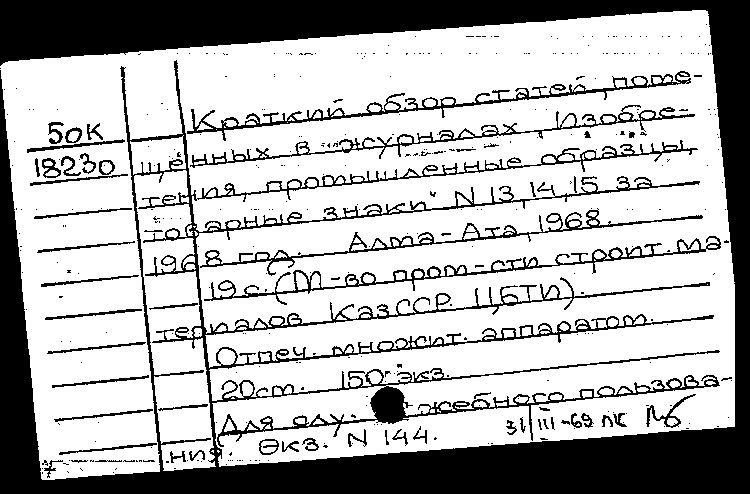 Краткий обзор статей, поме-
50К
18230
щённых в журналах „Изобре-
тения, промышленные образцы,
товарные знаки" N 13, 14, 15 за
1968 год. Алма-Ата, 1968.
19 с. (М-во пром-сти строит. ма-
териалов КазССР. ЦБТИ).
Отпеч. множит. аппаратом.
20см. 150 экз.
Для слу- жебного пользова-
ния. Экз. N 144. 31/III-69 ЛК